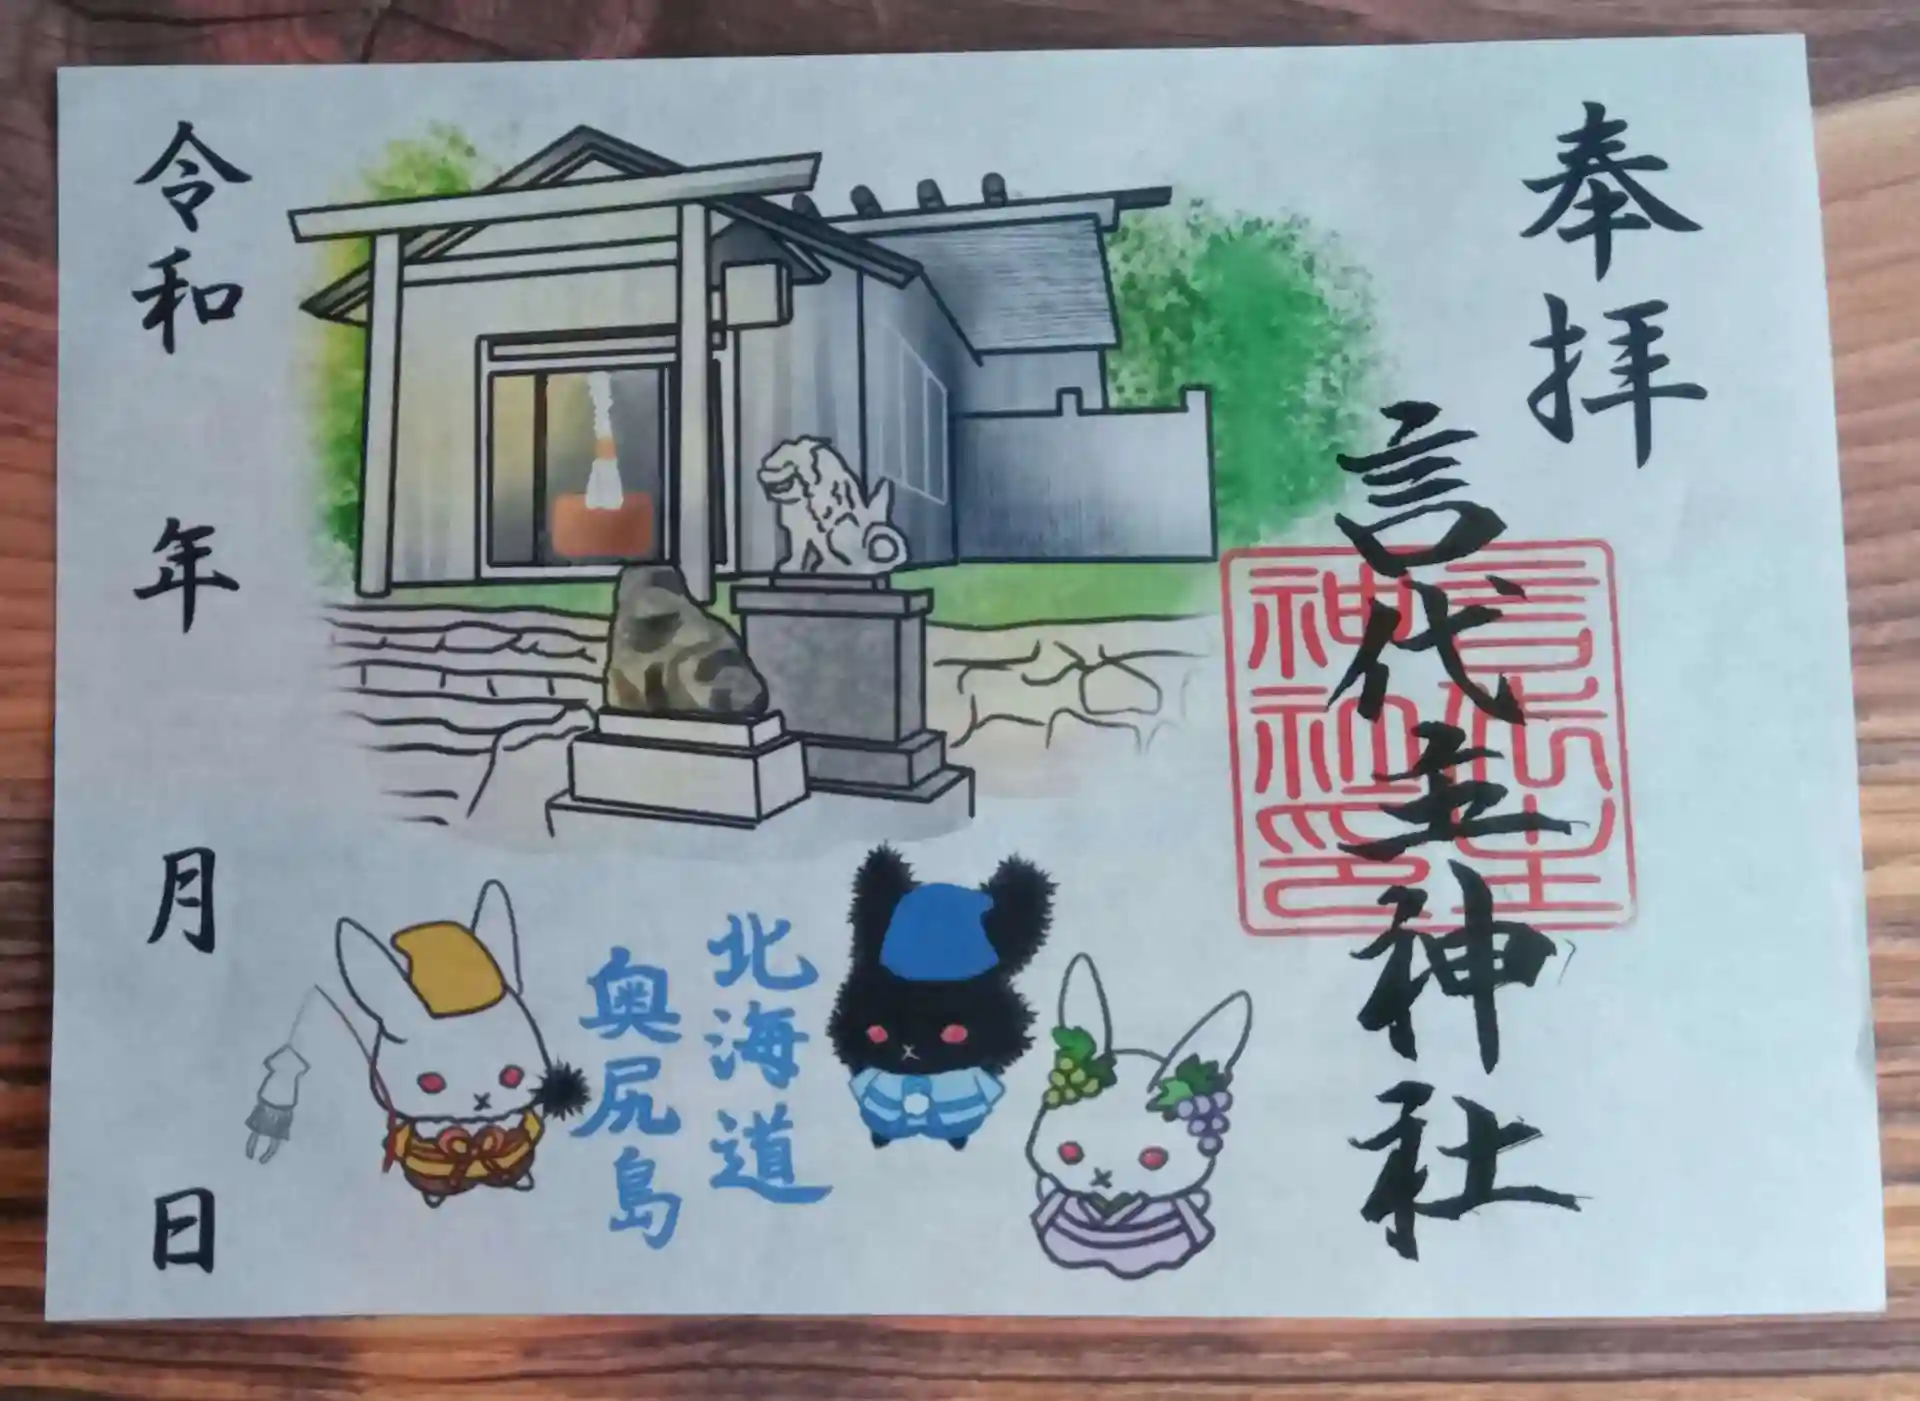 奉拝
言代主神社
言代主
神社印
北海道
奥尻島
令和 年 月 日